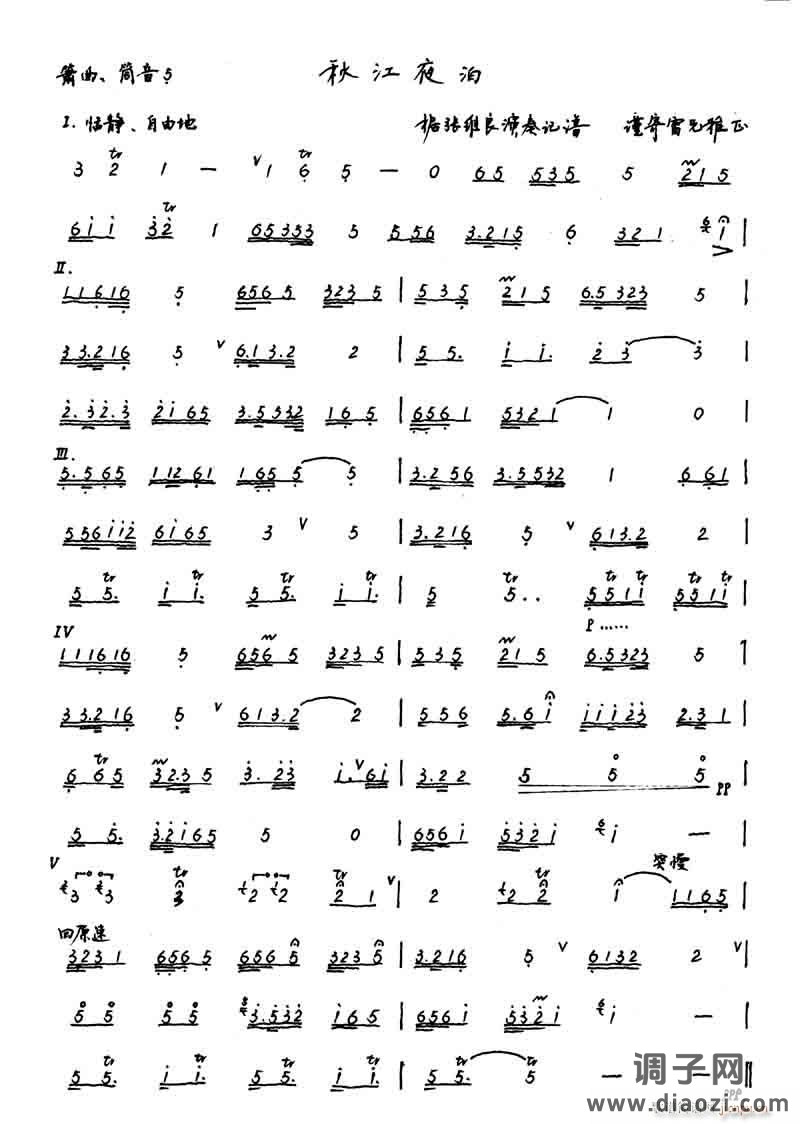 秋江夜泊
箫曲、筒音5
I. 恬静、自由地 据张维良演奏记谱 谨寄雷兄雅正
3 2 1 — V 1 6 5 — 0 65 535 5 215
tr tr
6ii 32 1 653533 5 556 3.215 6 321 i
tr
II.
11616 5 6565 3235 | 535 215 6.5323 5 |
33.216 5 V 6.13.2 2 | 55. ii. 23 3 |
2.32.3 2i65 3.5332 165 | 6561 5321 1 0 |
III.
5.565 11261 1655 5 | 3.256 3.5532 1 661 |
556ii2 6i65 3 V 5 | 3.216 5 V 613.2 2 |
tr tr tr tr tr tr tr tr
55. ii. 55. ii. | 5 5.. 55ii 55ii |
P ......
IV
111616 5 6565 3235 | 535 215 6.5323 5 |
33.216 5 V 613.2 2 | 556 5.6i iii23 2.31 |
tr
665 32.35 3.23 i.V6i | 3.22 5 5 5
pp
55. 3.2i65 5 0 | 656i 532i i — |
V
突慢
3 3 3 2 2 2 1 V | 2 2 2 i 1165 |
tr tr tr
回原速
3231 6565 6565 3235 | 3.216 5 V 6132 2 V |
55 55 3.532 i65 | 656i 532i i — |
tr tr tr tr tr
55. ii. 55. ii. | 55. 5 — — ||
ppp
调子网
www.diaozi.com